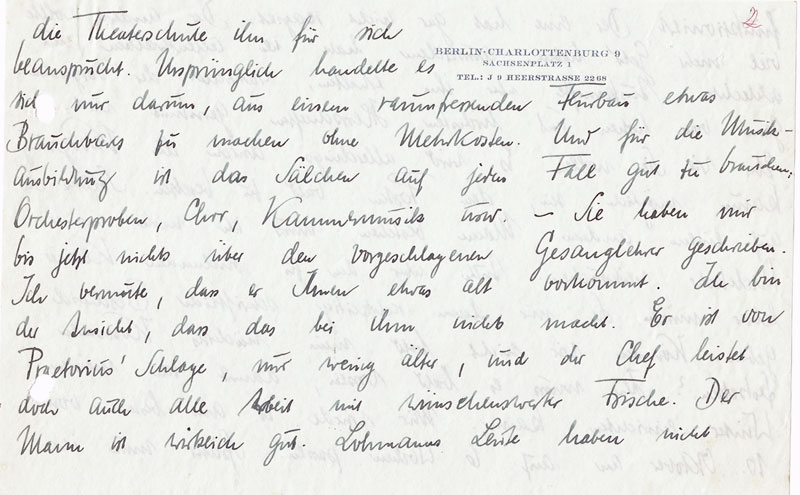 2
die Theaterschule ihn für sich
BERLIN-CHARLOTTENBURG 9
SACHSENPLATZ 1
TEL.: J 9 HEERSTRASSE 2268
beansprucht. Ursprünglich handelte es
sich nur darum, aus einem raumfressenden Flurbau etwas
Brauchbares zu machen ohne Mehrkosten. Und für die Musik-
ausbildung ist das Sälchen auf jeden Fall gut zu brauchen:
Orchesterproben, Chor, Kammermusik usw. – Sie haben mir
bis jetzt nichts über den vorgeschlagenen Gesanglehrer geschrieben.
Ich vermute, dass er Ihnen etwas alt vorkommt. Ich bin
der Ansicht, dass das bei ihm nichts macht. Er ist von
Praetorius' Schlage, nur wenig älter, und der Chef leistet
doch auch alle Arbeit mit wünschenswerter Frische. Der
Mann ist wirklich gut. Lohmanns Leute haben nicht